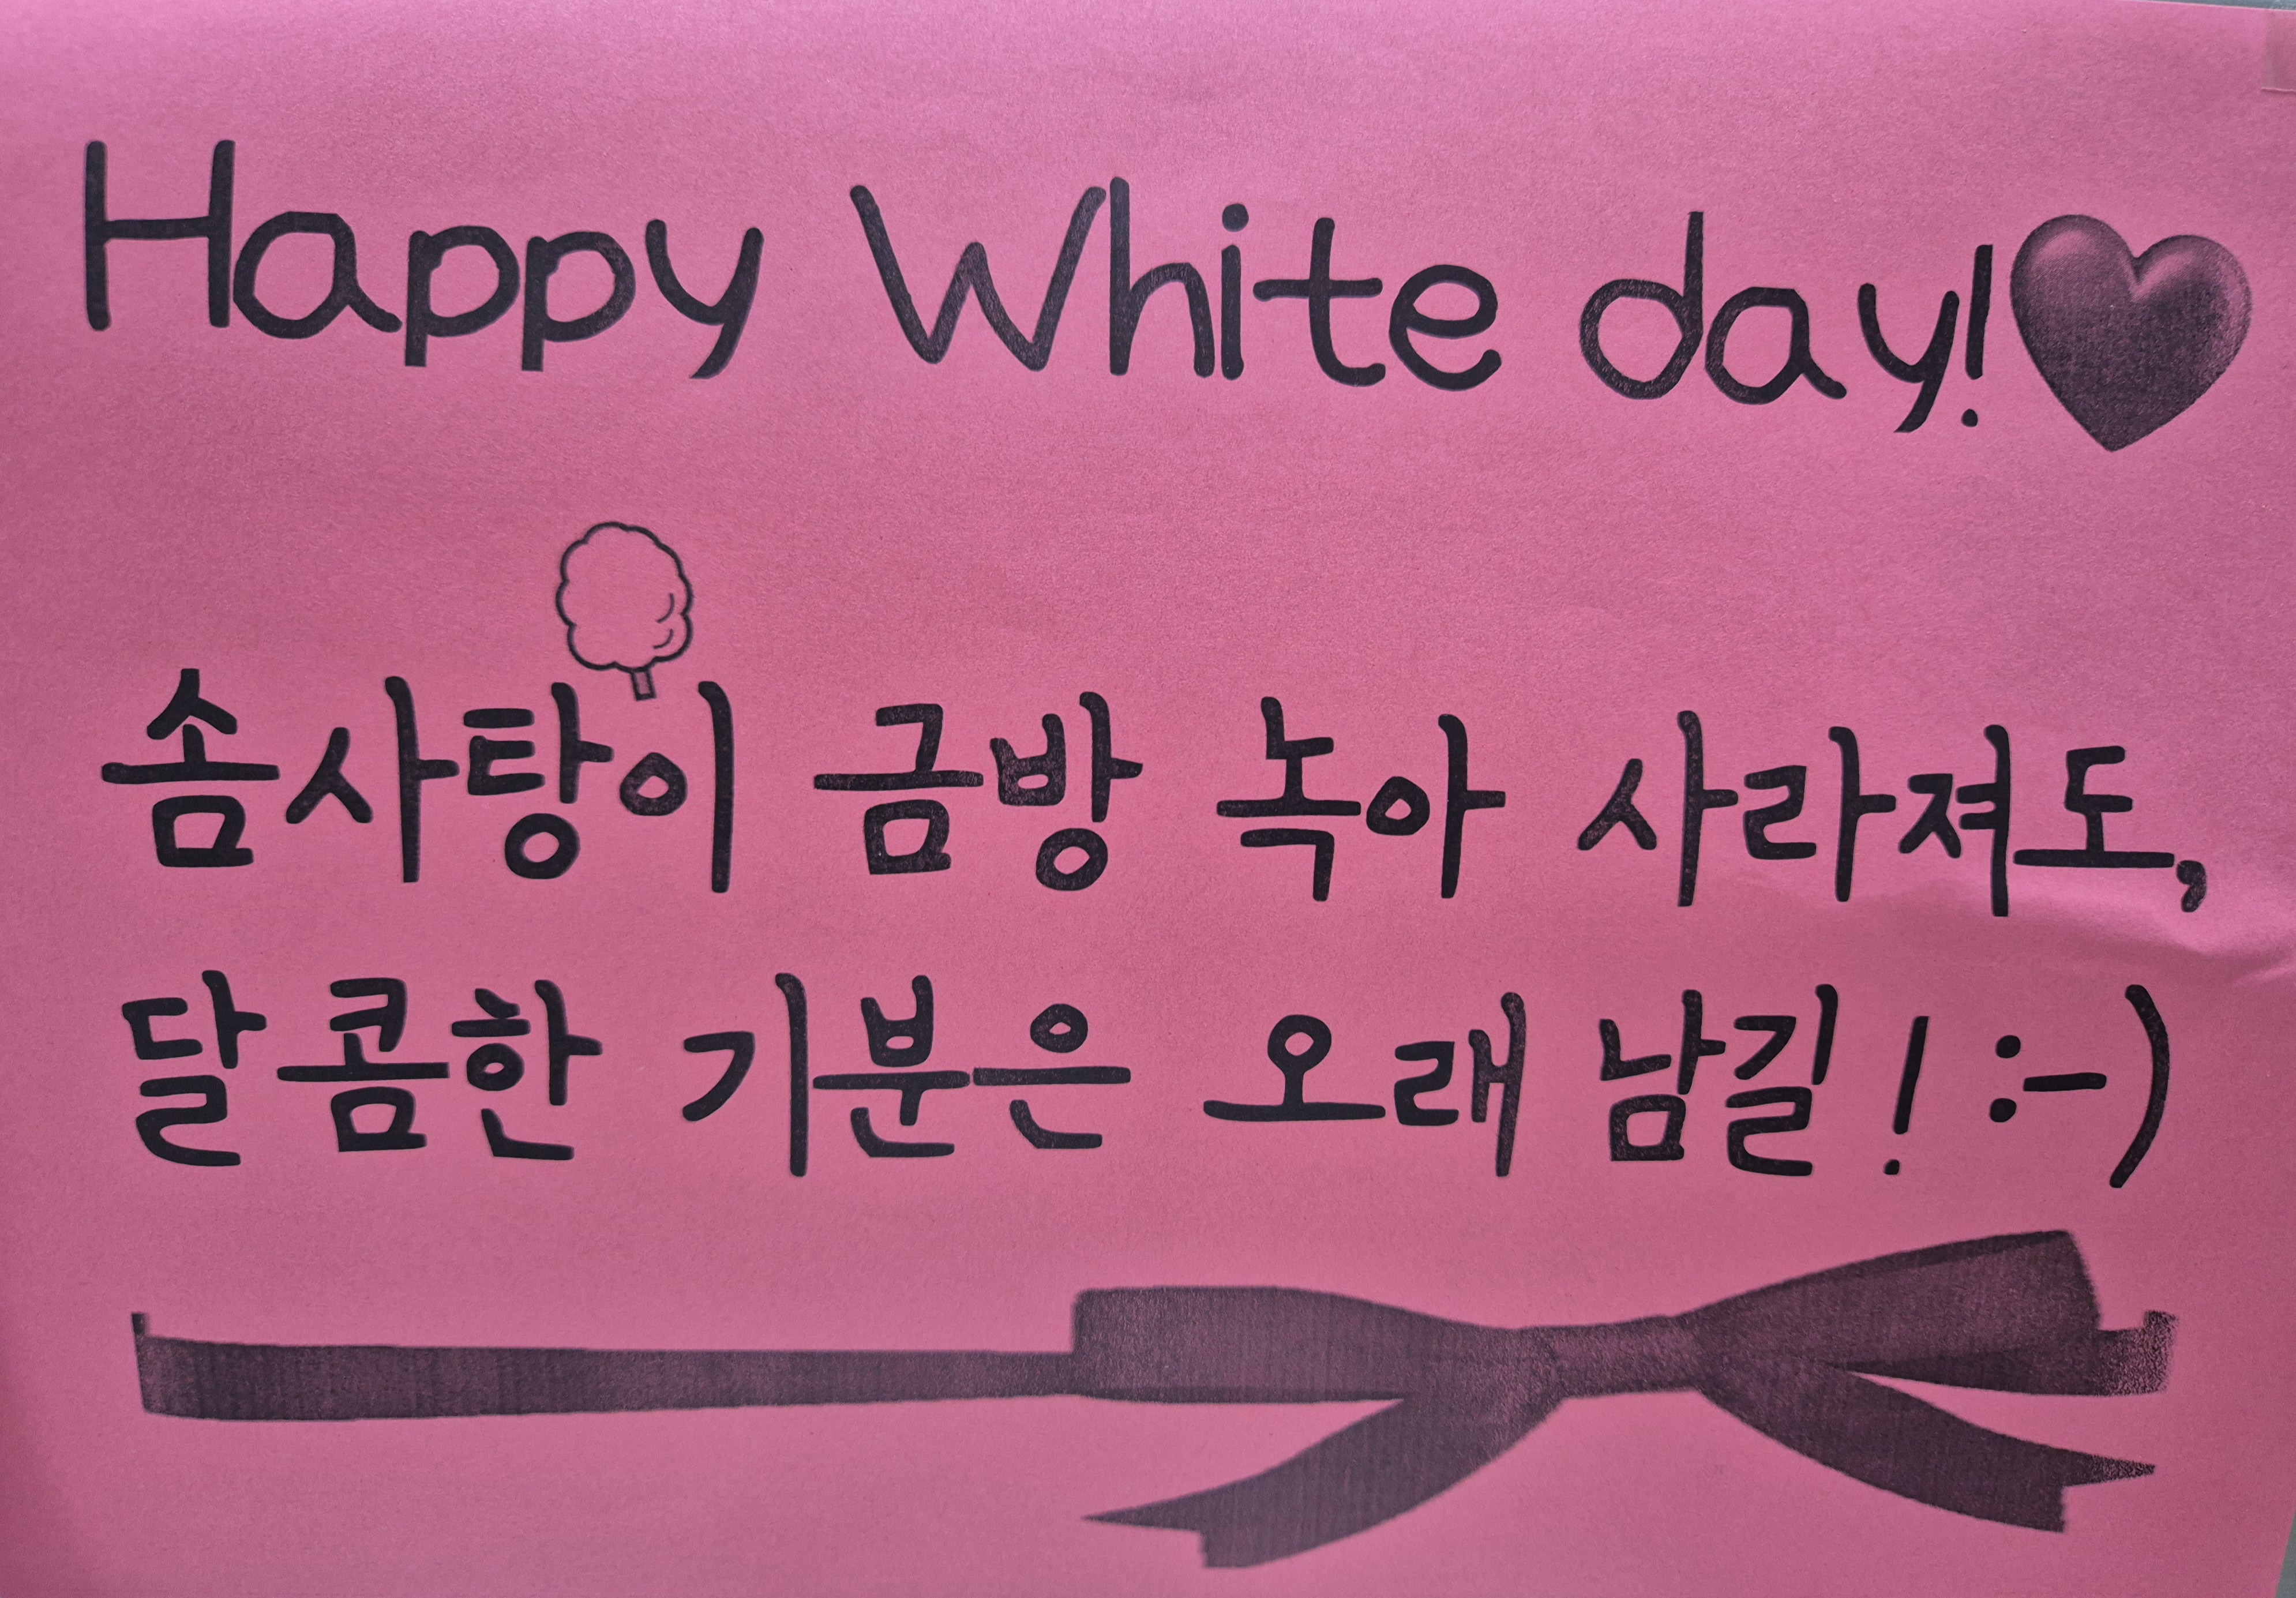 Happy White day!
솜사탕이 금방 녹아 사라져도,
달콤한 기분은 오래 남길! :-)